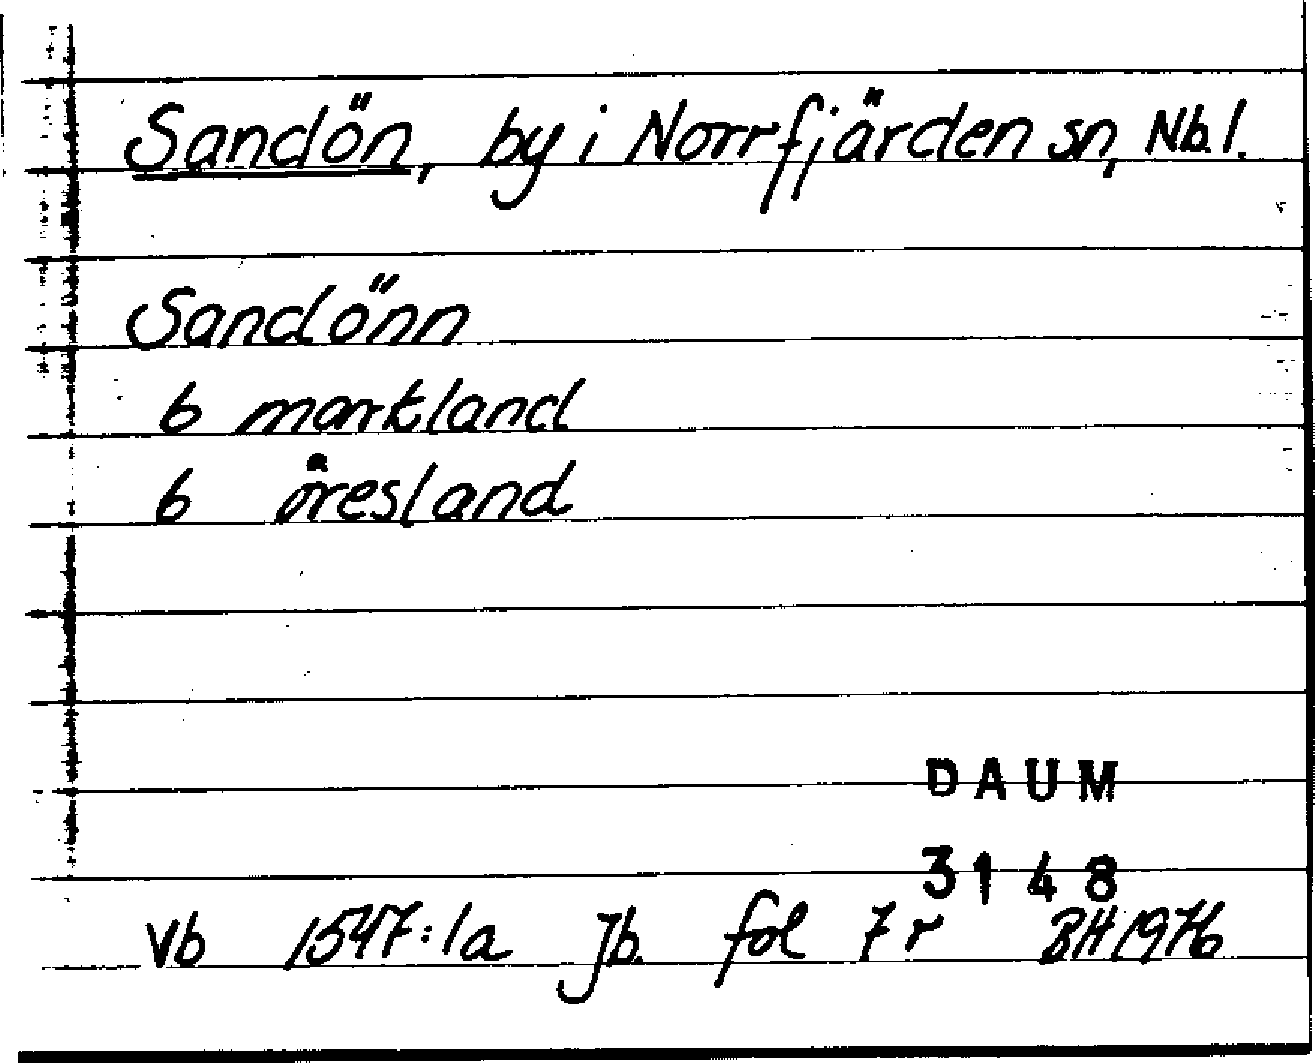 Sandön, by i Norrfjärden sn, Nb.l.
Sandönn
6 markland
6 öresland
DAUM
3148
Vb 1547:1a Jb. fol 7 r BH 1976